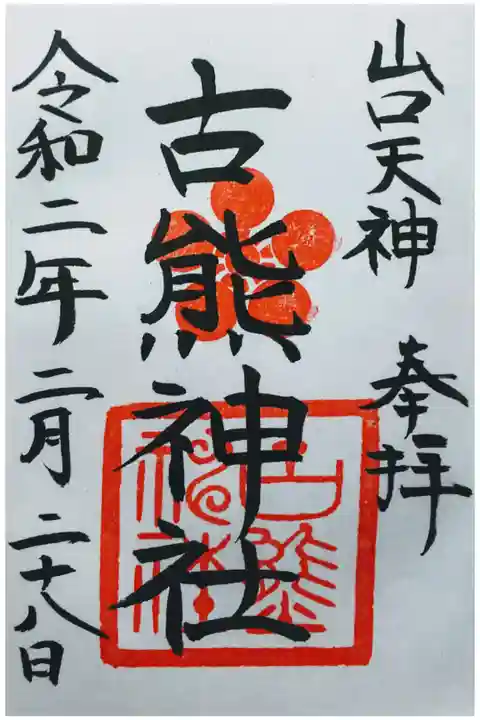 山口天神 奉拝
古熊神社
令和二年二月二十八日
古熊神社